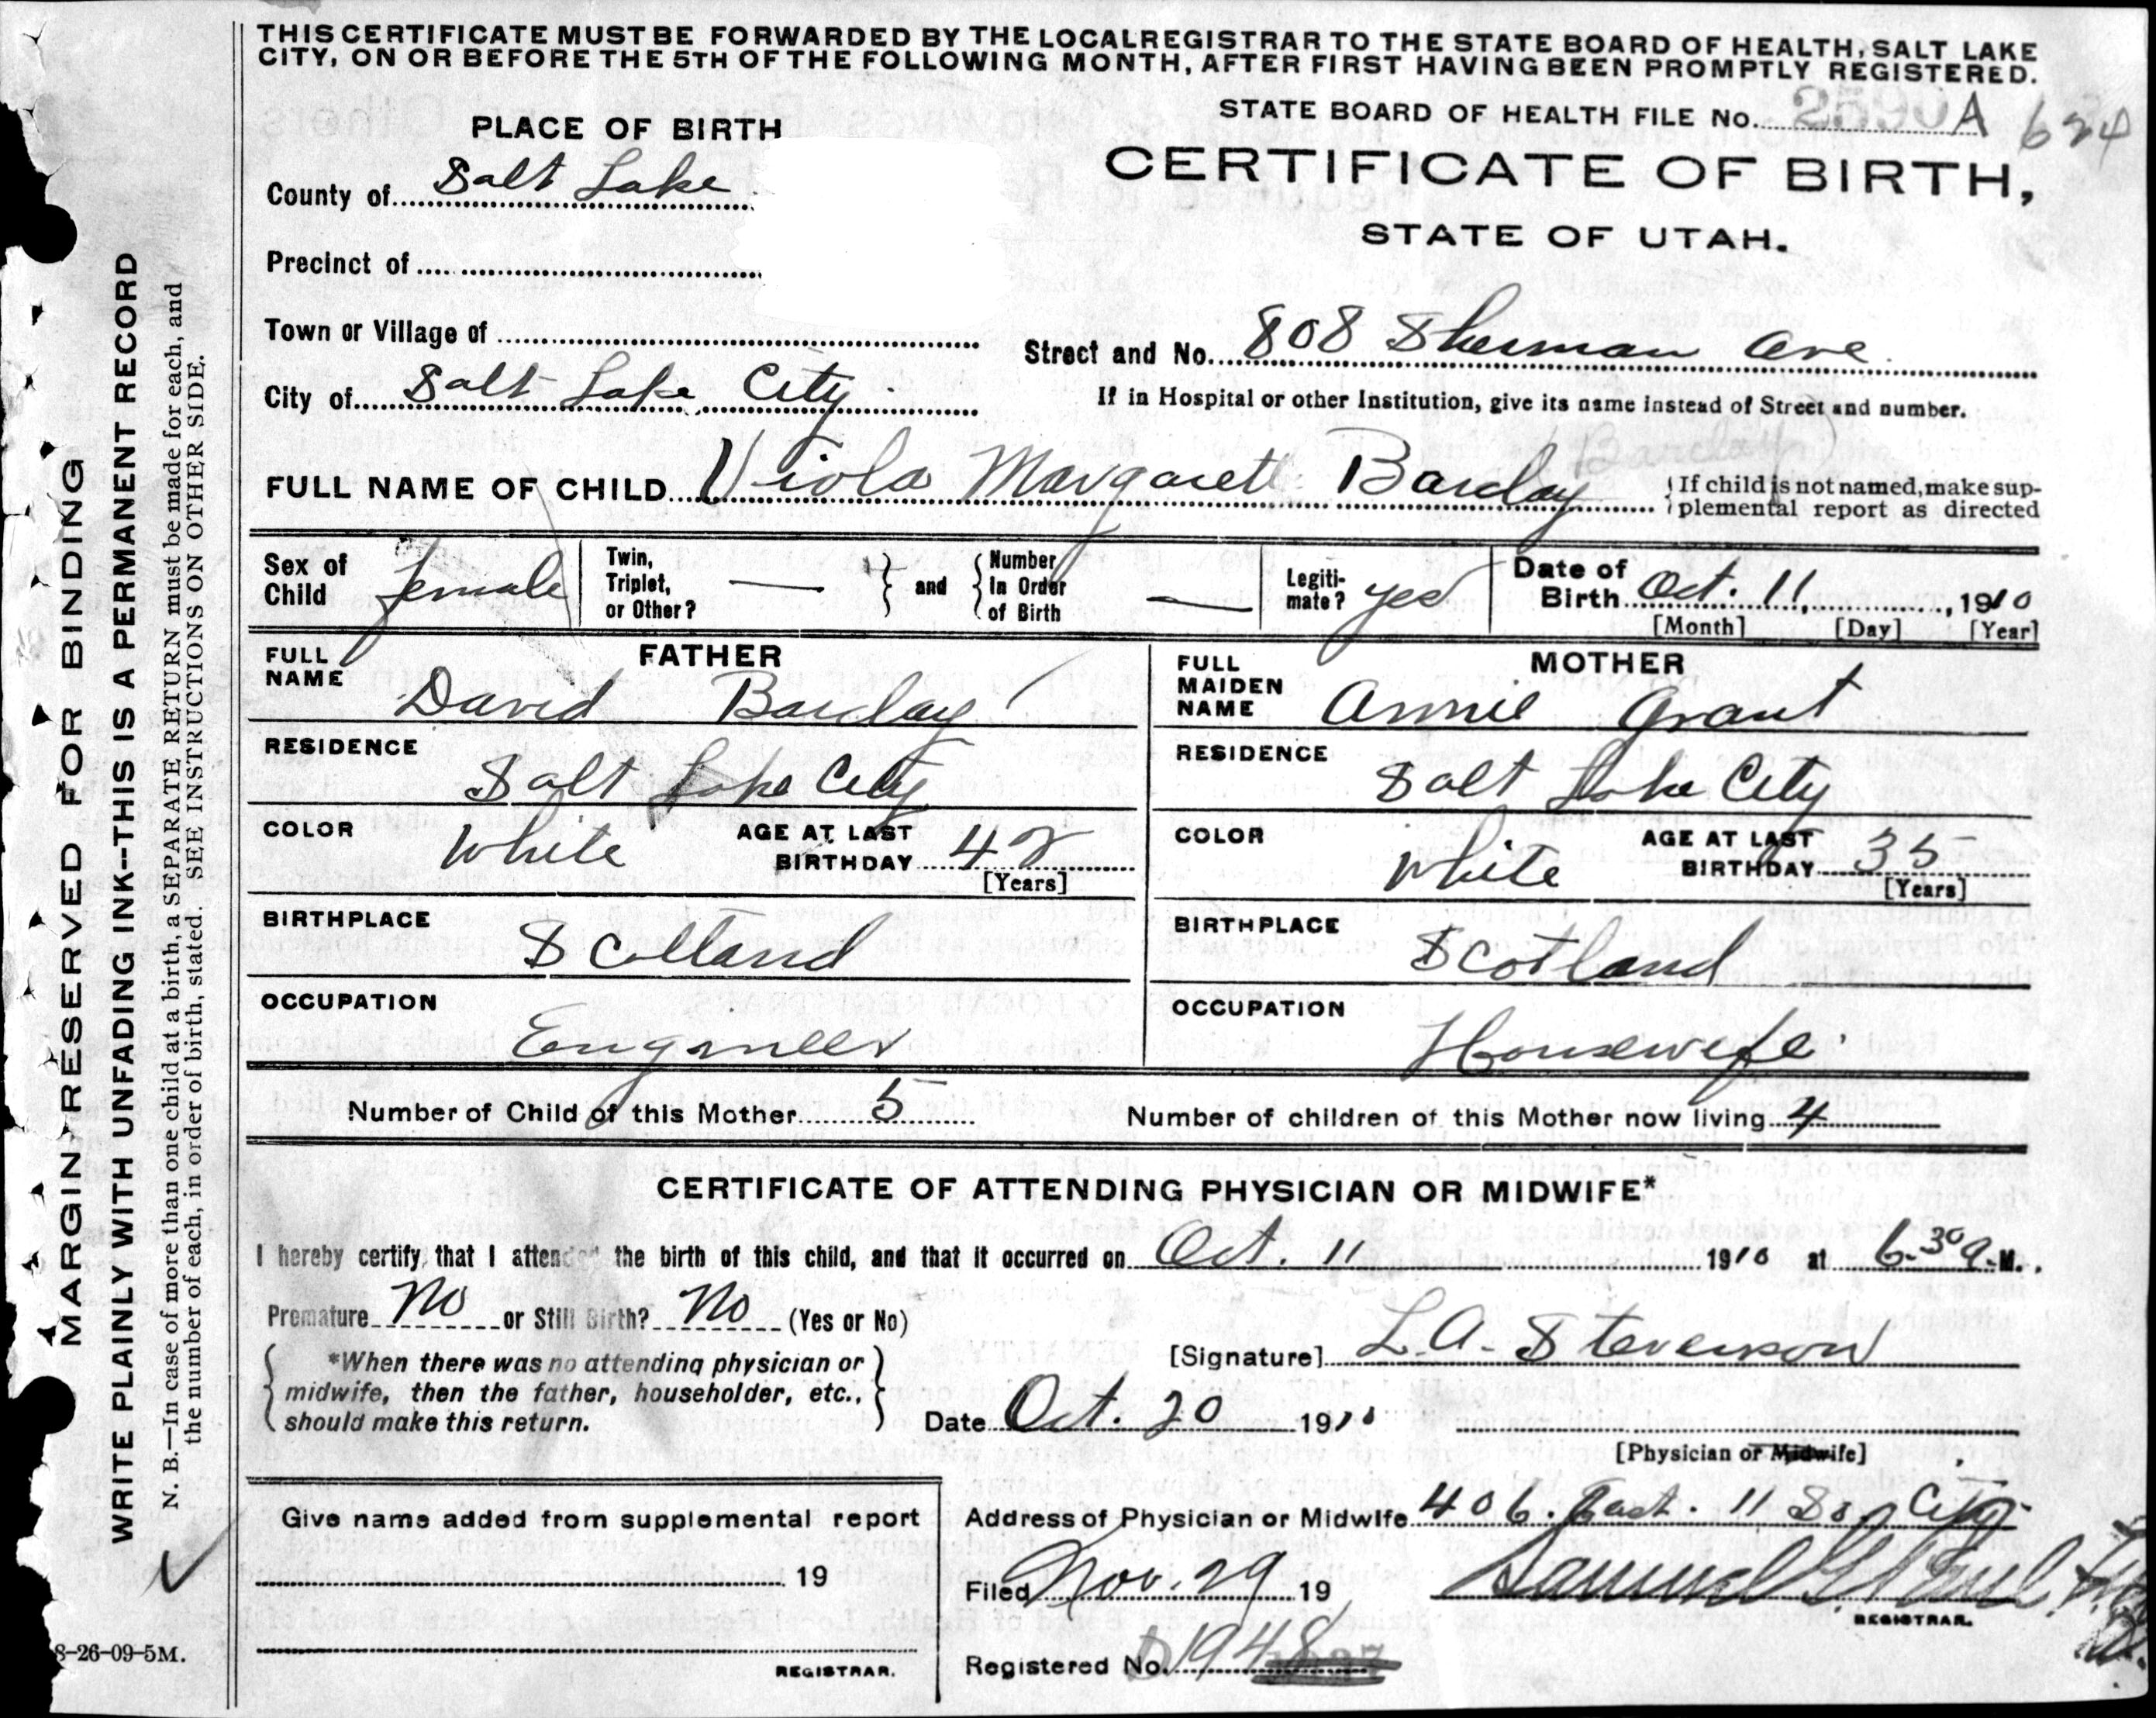 THIS CERTIFICATE MUST BE FORWARDED BY THE LOCAL REGISTRAR TO THE STATE BOARD OF HEALTH, SALT LAKE
CITY, ON OR BEFORE THE 5TH OF THE FOLLOWING MONTH, AFTER FIRST HAVING BEEN PROMPTLY REGISTERED.
STATE BOARD OF HEALTH FILE No. 2590 A 624
PLACE OF BIRTH
CERTIFICATE OF BIRTH,
STATE OF UTAH.
County of Salt Lake
Precinct of
Town or Village of
Street and No. 808 Sherman Ave
City of Salt Lake City
If in Hospital or other Institution, give its name instead of Street and number.
(Barclay)
FULL NAME OF CHILD Viola Margaret Barclay
{ If child is not named, make sup-
plemental report as directed
Sex of Child female
Twin, Triplet, or Other? —
} and { Number in Order of Birth —
Legiti-
mate? yes
Date of Birth Oct. 11, 1910
[Month] [Day] [Year]
FATHER
FULL NAME David Barclay
RESIDENCE Salt Lake City
COLOR White AGE AT LAST BIRTHDAY 42
[Years]
BIRTHPLACE Scotland
OCCUPATION Engineer
MOTHER
FULL MAIDEN NAME Annie Grant
RESIDENCE Salt Lake City
COLOR White AGE AT LAST BIRTHDAY 35
[Years]
BIRTHPLACE Scotland
OCCUPATION Housewife
Number of Child of this Mother 5 Number of children of this Mother now living 4
CERTIFICATE OF ATTENDING PHYSICIAN OR MIDWIFE*
I hereby certify, that I attended the birth of this child, and that it occurred on Oct. 11 1910 at 6.30 a.M.
Premature No or Still Birth? No (Yes or No)
[Signature] L. A. Stevenson
{ *When there was no attending physician or
midwife, then the father, householder, etc.,
should make this return. }
Date Oct. 20 1910
[Physician or Midwife]
Give name added from supplemental report
19
REGISTRAR.
Address of Physician or Midwife 406. East. 11 So, City
Filed Nov. 29 19
REGISTRAR.
Registered No. D1948
MARGIN RESERVED FOR BINDING
WRITE PLAINLY WITH UNFADING INK--THIS IS A PERMANENT RECORD
N. B.—In case of more than one child at a birth, a SEPARATE RETURN must be made for each, and
the number of each, in order of birth, stated. SEE INSTRUCTIONS ON OTHER SIDE.
8-26-09-5M.